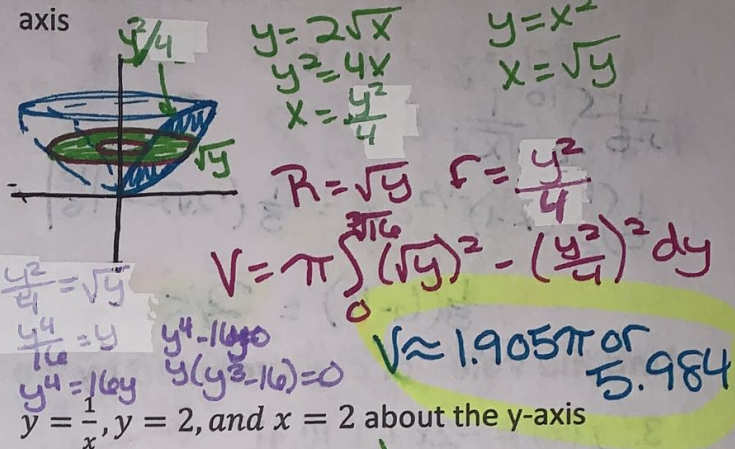 axis
y²/4
y = 2√x
y² = 4x
x = y²/4
y = x²
x = √y
√y
R = √y r = y²/4
V = π ∫₀^∛16 (√y)² - (y²/4)² dy
y²/4 = √y
y⁴/16 = y
y⁴ = 16y
y⁴ - 16y = 0
y(y³ - 16) = 0
V ≈ 1.905π or
5.984
y = 1/x, y = 2, and x = 2 about the y-axis